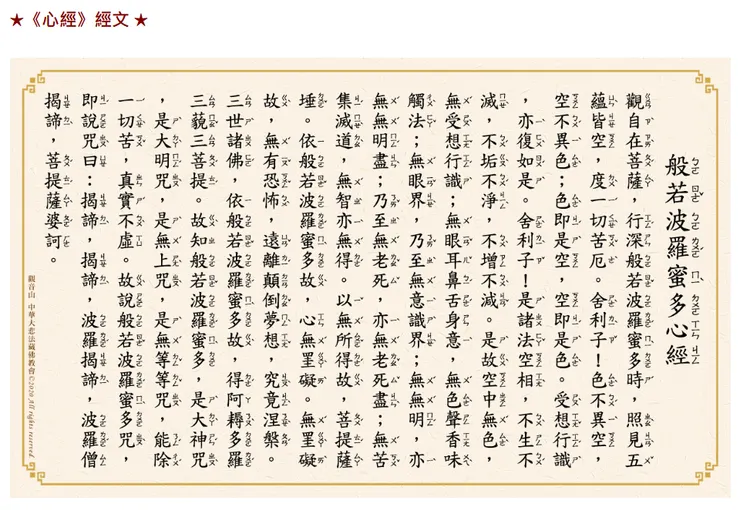 ★《心經》經文★
般若波羅蜜多心經
觀自在菩薩，行深般若波羅蜜多時，照見五
蘊皆空，度一切苦厄。舍利子！色不異空，
空不異色；色即是空，空即是色。受想行識
，亦復如是。舍利子！是諸法空相，不生不
滅，不垢不淨，不增不減。是故空中無色，
無受想行識；無眼耳鼻舌身意，無色聲香味
觸法；無眼界，乃至無意識界；無無明，亦
無無明盡；乃至無老死，亦無老死盡；無苦
集滅道，無智亦無得。以無所得故，菩提薩
埵。依般若波羅蜜多故，心無罣礙。無罣礙
故，無有恐怖，遠離顛倒夢想，究竟涅槃。
三世諸佛，依般若波羅蜜多故，得阿耨多羅
三藐三菩提。故知般若波羅蜜多，是大神咒
，是大明咒，是無上咒，是無等等咒，能除
一切苦，真實不虛。故說般若波羅蜜多咒，
即說咒曰：揭諦，揭諦，波羅揭諦，波羅僧
揭諦，菩提薩婆訶。
觀音山 中華大悲法藏佛教會©2020 All rights reserved